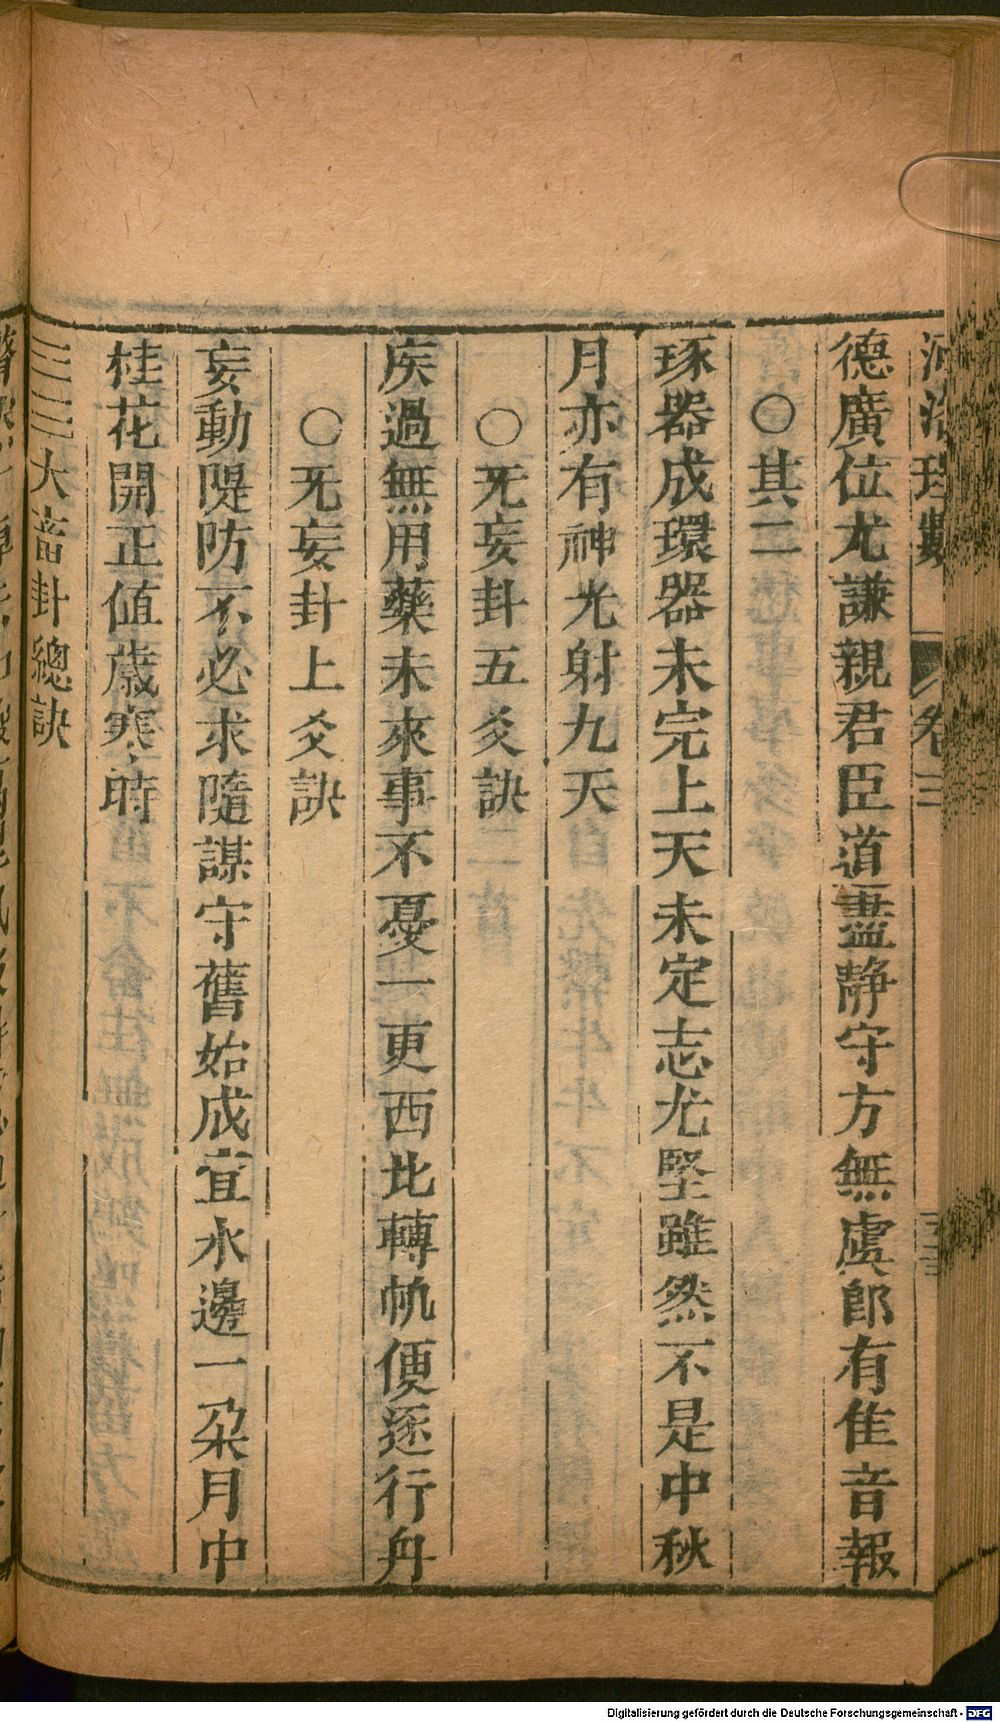 河洛理數 卷三
德廣位尤謙親君臣道盡靜守方無虞郎有隹音報
○其二
琢器成環器未完上天未定志尤堅雖然不是中秋
月亦有神光射九天
○旡妄卦五爻訣
疾過無用藥未來事不憂一更西北轉帆便逐行舟
○旡妄卦上爻訣
妄動隄防不必求隨謀守舊始成宜水邊一朶月中
桂花開正值歲寒時
大畜卦總訣
Digitalisierung gefördert durch die Deutsche Forschungsgemeinschaft - DFG